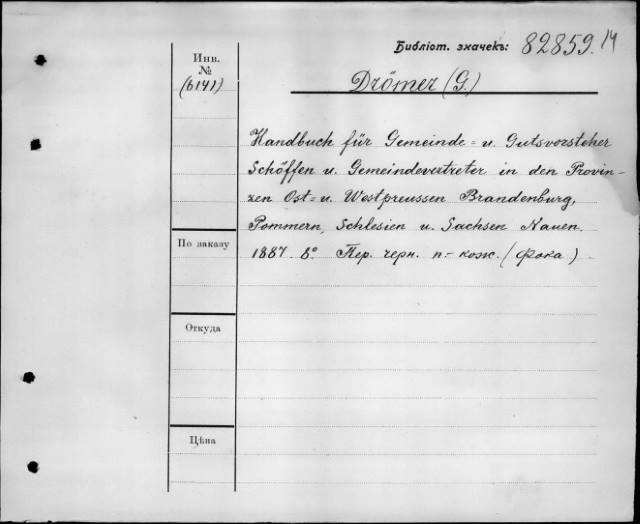 Библіот. значекъ: 82859.14
Инв.
№
(6141)
Drömer (G.)
Handbuch für Gemeinde= u. Gutsvorsteher
Schöffen u. Gemeindevertreter in den Provin-
zen Ost= u. Westpreussen Brandenburg,
Pommern, Schlesien u. Sachsen Nauen.
1887. 8° Пер. черн. п.- кож. (Фока)
По заказу
Откуда
Цѣна